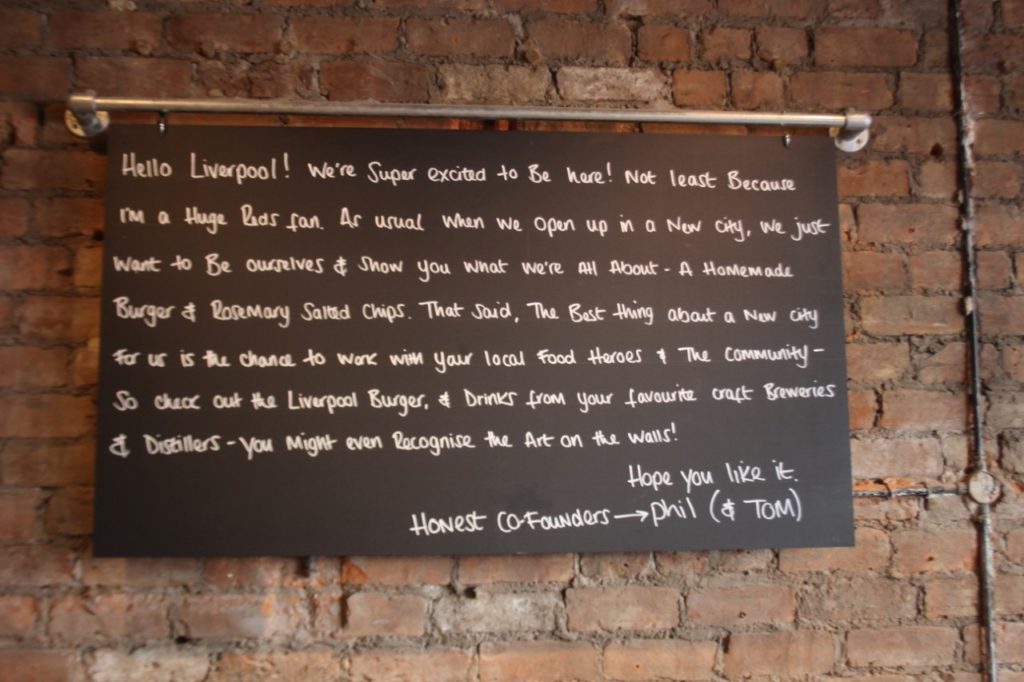 Hello Liverpool! We're Super excited to Be here! Not least Because
I'm a Huge Reds fan. As usual when we open up in a New city, we just
want to Be ourselves & Show you what we're All About - A Homemade
Burger & Rosemary Salted Chips. That said, The Best thing about a New city
For us is the chance to work with your local Food Heroes & The Community -
So check out the Liverpool Burger, & Drinks from your favourite craft Breweries
& Distillers - you Might even Recognise the Art on the walls!
Hope you like it.
Honest Co-Founders → Phil (& TOM)